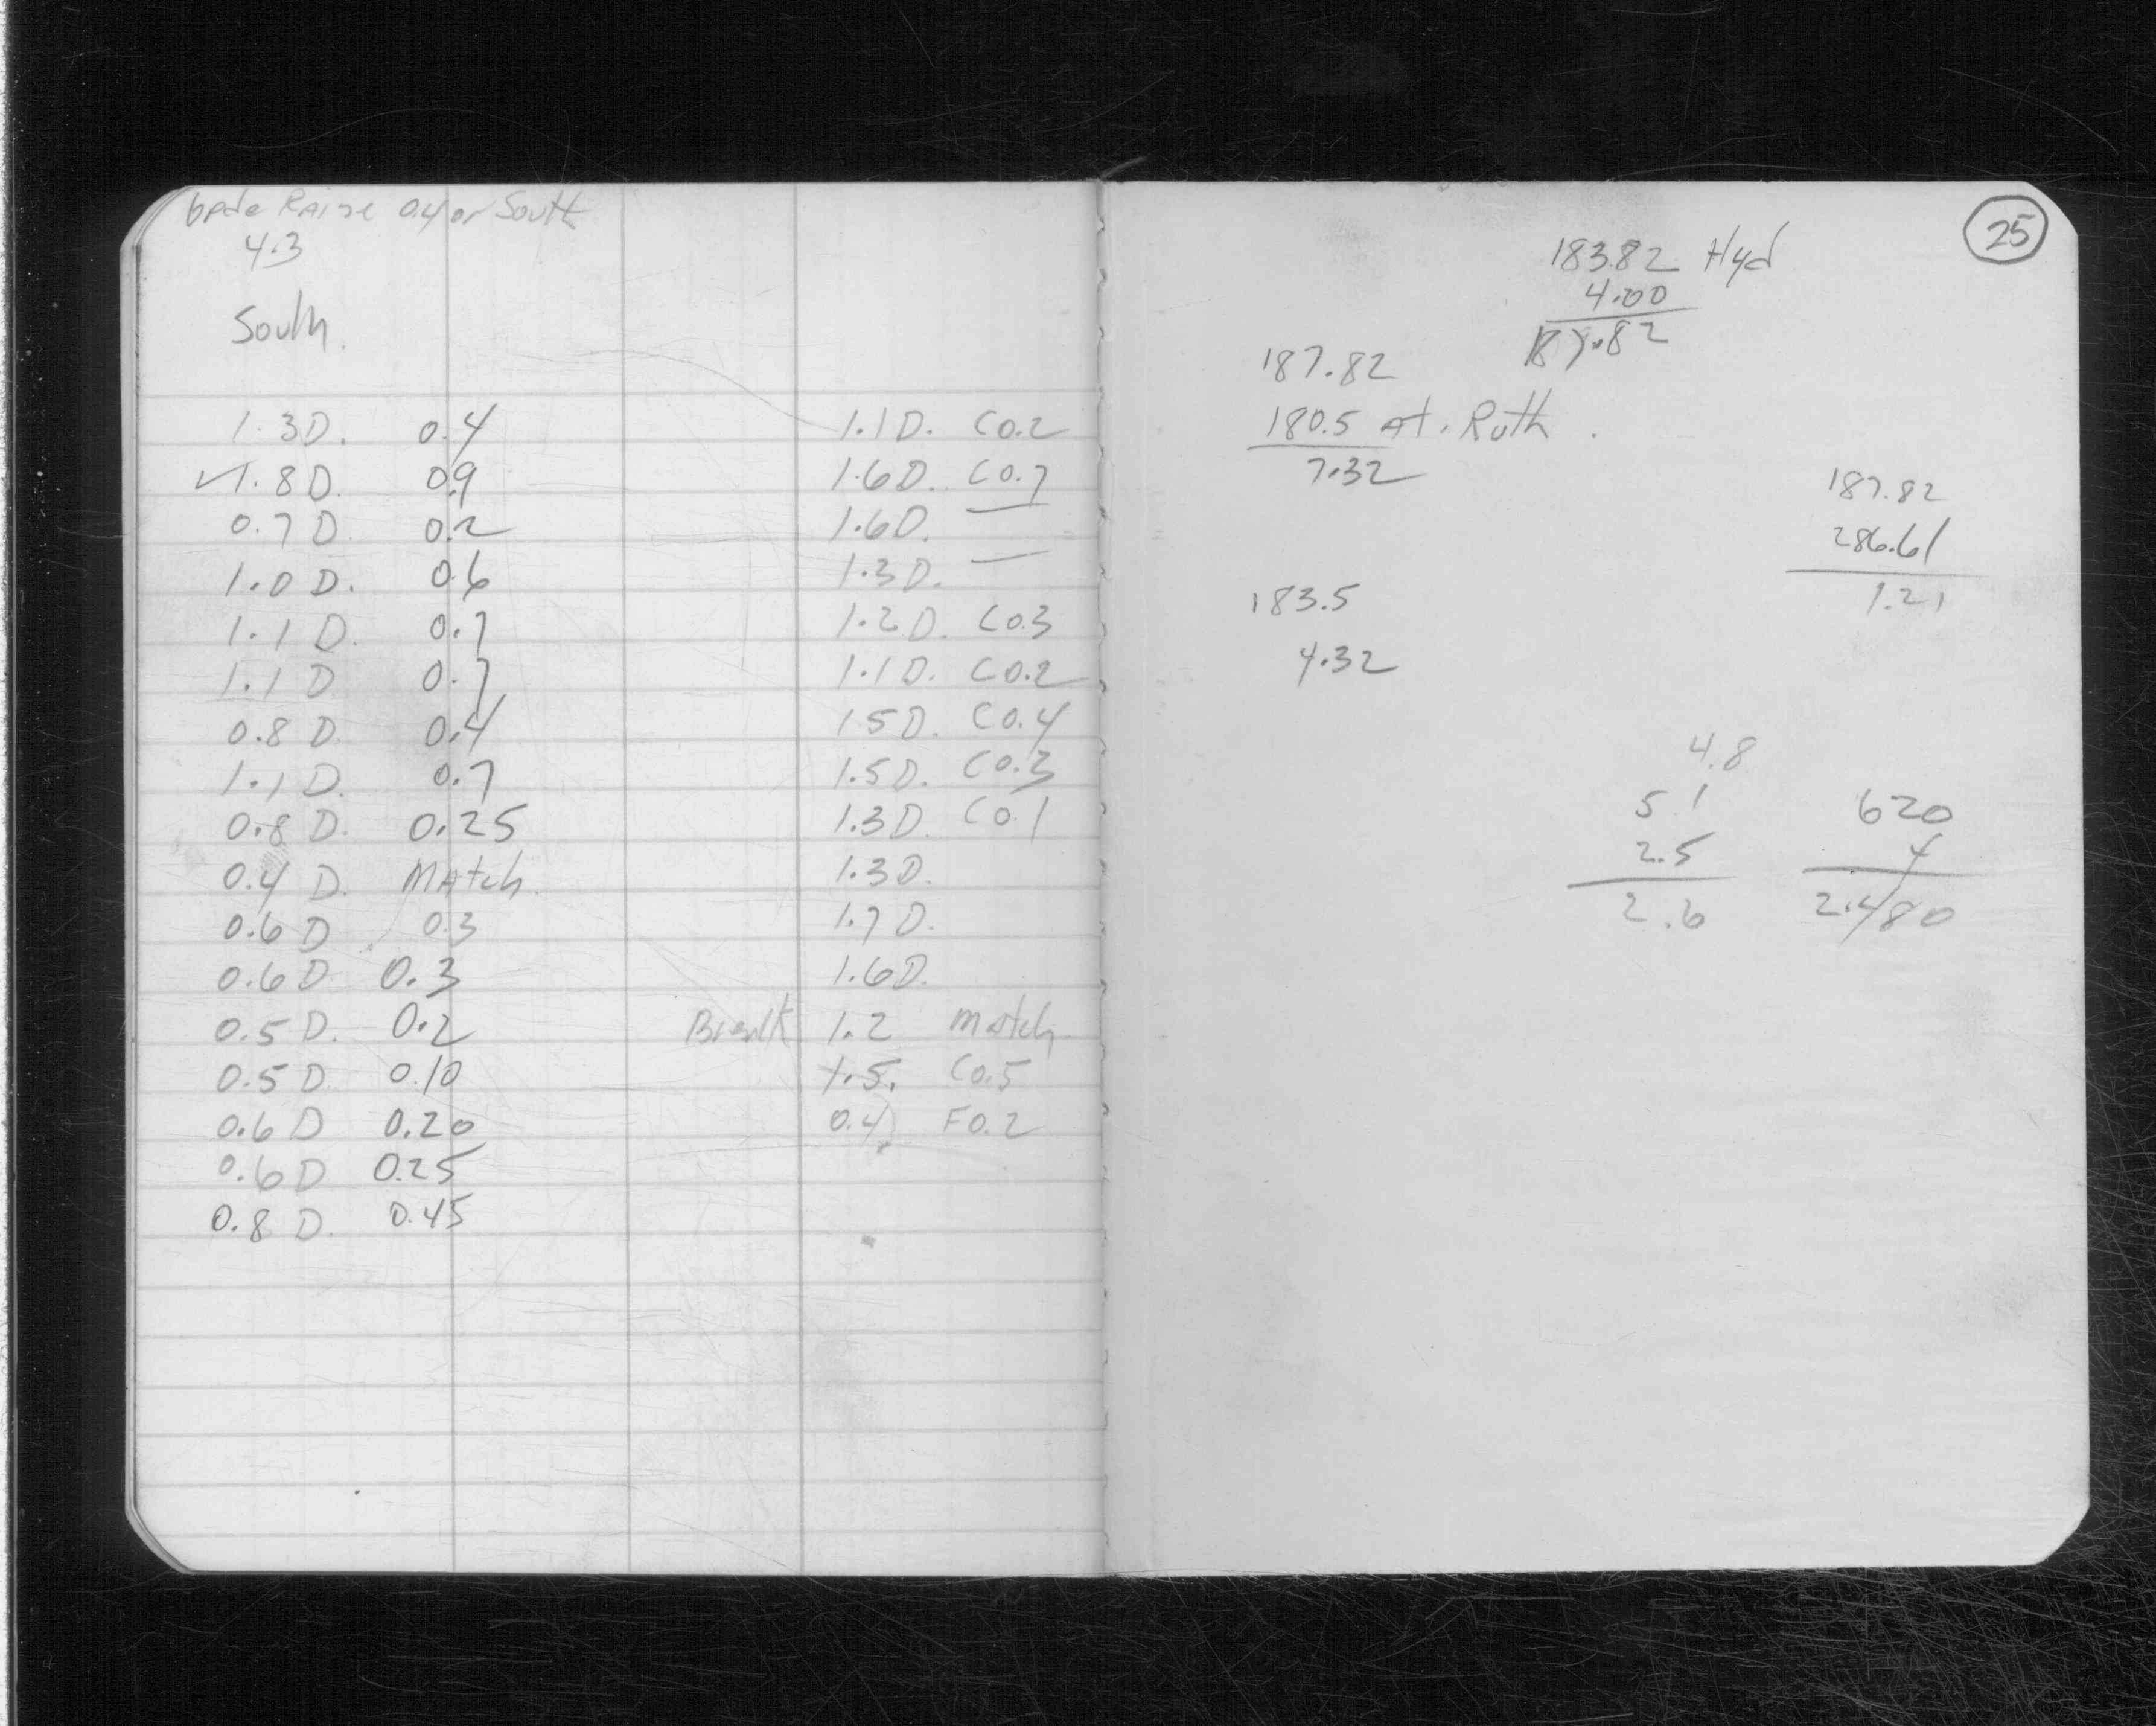 Grade Raise 0.4 on South
4.3
South.
1.3 D. 0.4 1.1 D. C0.2
✓1.8 D. 0.9 1.6 D. C0.7
0.7 D. 0.2 1.6 D. —
1.0 D. 0.6 1.3 D. —
1.1 D. 0.7 1.2 D. C0.3
1.1 D 0.7 1.1 D. C0.2
0.8 D. 0.4 1.5 D. C0.4
1.1 D. 0.7 1.5 D. C0.3
0.8 D. 0.25 1.3 D. C0.1
0.4 D. Match. 1.3 D.
0.6 D 0.3 1.7 D.
0.6 D. 0.3 1.6 D.
0.5 D. 0.2 Break 1.2 match
0.5 D. 0.10 1.5. C0.5
0.6 D 0.20 0.4 F0.2
0.6 D 0.25
0.8 D. 0.45
25
183.82 Hyd
4.00
187.82
187.82
180.5 At. Ruth.
7.32
187.82
286.61
1.21
183.5
4.32
4.8
5.1
2.5
2.6
620
4
2.480